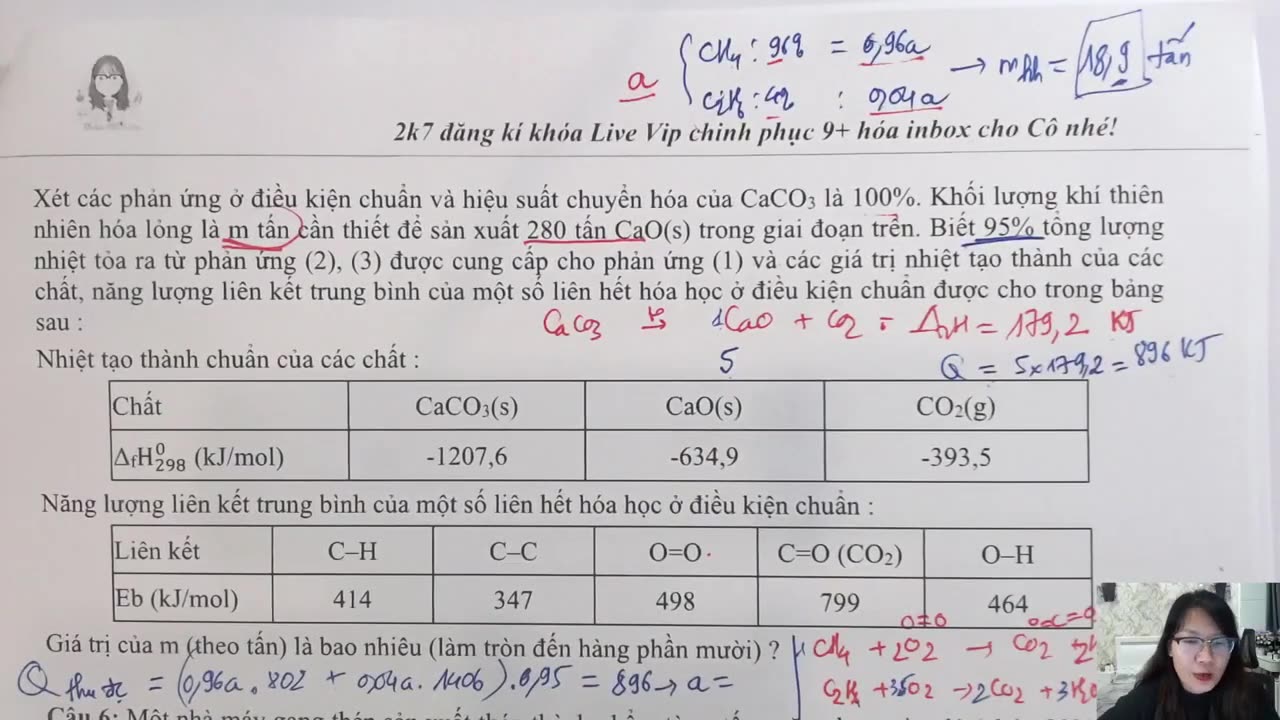 CH4 : 96% = 0,96a
a → mhh = 18,9 tấn
C2H6 : 4% : 0,04a
2k7 đăng kí khóa Live Vip chinh phục 9+ hóa inbox cho Cô nhé!
Xét các phản ứng ở điều kiện chuẩn và hiệu suất chuyển hóa của CaCO3 là 100%. Khối lượng khí thiên
nhiên hóa lỏng là m tấn cần thiết để sản xuất 280 tấn CaO(s) trong giai đoạn trên. Biết 95% tổng lượng
nhiệt tỏa ra từ phản ứng (2), (3) được cung cấp cho phản ứng (1) và các giá trị nhiệt tạo thành của các
chất, năng lượng liên kết trung bình của một số liên hết hóa học ở điều kiện chuẩn được cho trong bảng
sau :
CaCO3 → 1CaO + CO2 : ΔrH = 179,2 KJ
Nhiệt tạo thành chuẩn của các chất :
5 Q = 5x179,2 = 896 KJ
Chất CaCO3(s) CaO(s) CO2(g)
ΔfH⁰298 (kJ/mol) -1207,6 -634,9 -393,5
Năng lượng liên kết trung bình của một số liên hết hóa học ở điều kiện chuẩn :
Liên kết C–H C–C O=O C=O (CO2) O–H
Eb (kJ/mol) 414 347 498 799 464
O=O O=C=O
Giá trị của m (theo tấn) là bao nhiêu (làm tròn đến hàng phần mười) ?
CH4 + 2O2 → CO2 +
Q = (0,96a . 802 + 0,04a . 1406) . 0,95 = 896 → a =
C2H6 + 3,5O2 → 2CO2 +
Câu 6: Một nhà máy gang thép sản xuất thép